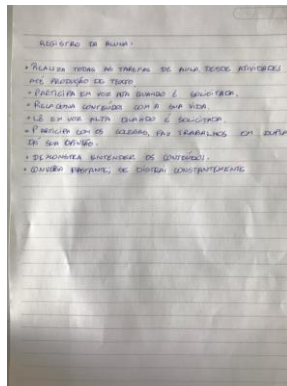 REGISTRO DA ALUNA:
• REALIZA TODAS AS TAREFAS DE AULA DESDE ATIVIDADES
ATÉ PRODUÇÃO DE TEXTO
• PARTICIPA EM VOZ ALTA QUANDO É SOLICITADA.
• RELACIONA CONTEÚDOS COM A SUA VIDA.
• LÊ EM VOZ ALTA QUANDO É SOLICITADA.
• PARTICIPA COM OS COLEGAS, FAZ TRABALHOS EM DUPLA
DÁ SUA OPINIÃO.
• DEMONSTRA ENTENDER OS CONTEÚDOS.
• CONVERSA BASTANTE, SE DISTRAI CONSTANTEMENTE